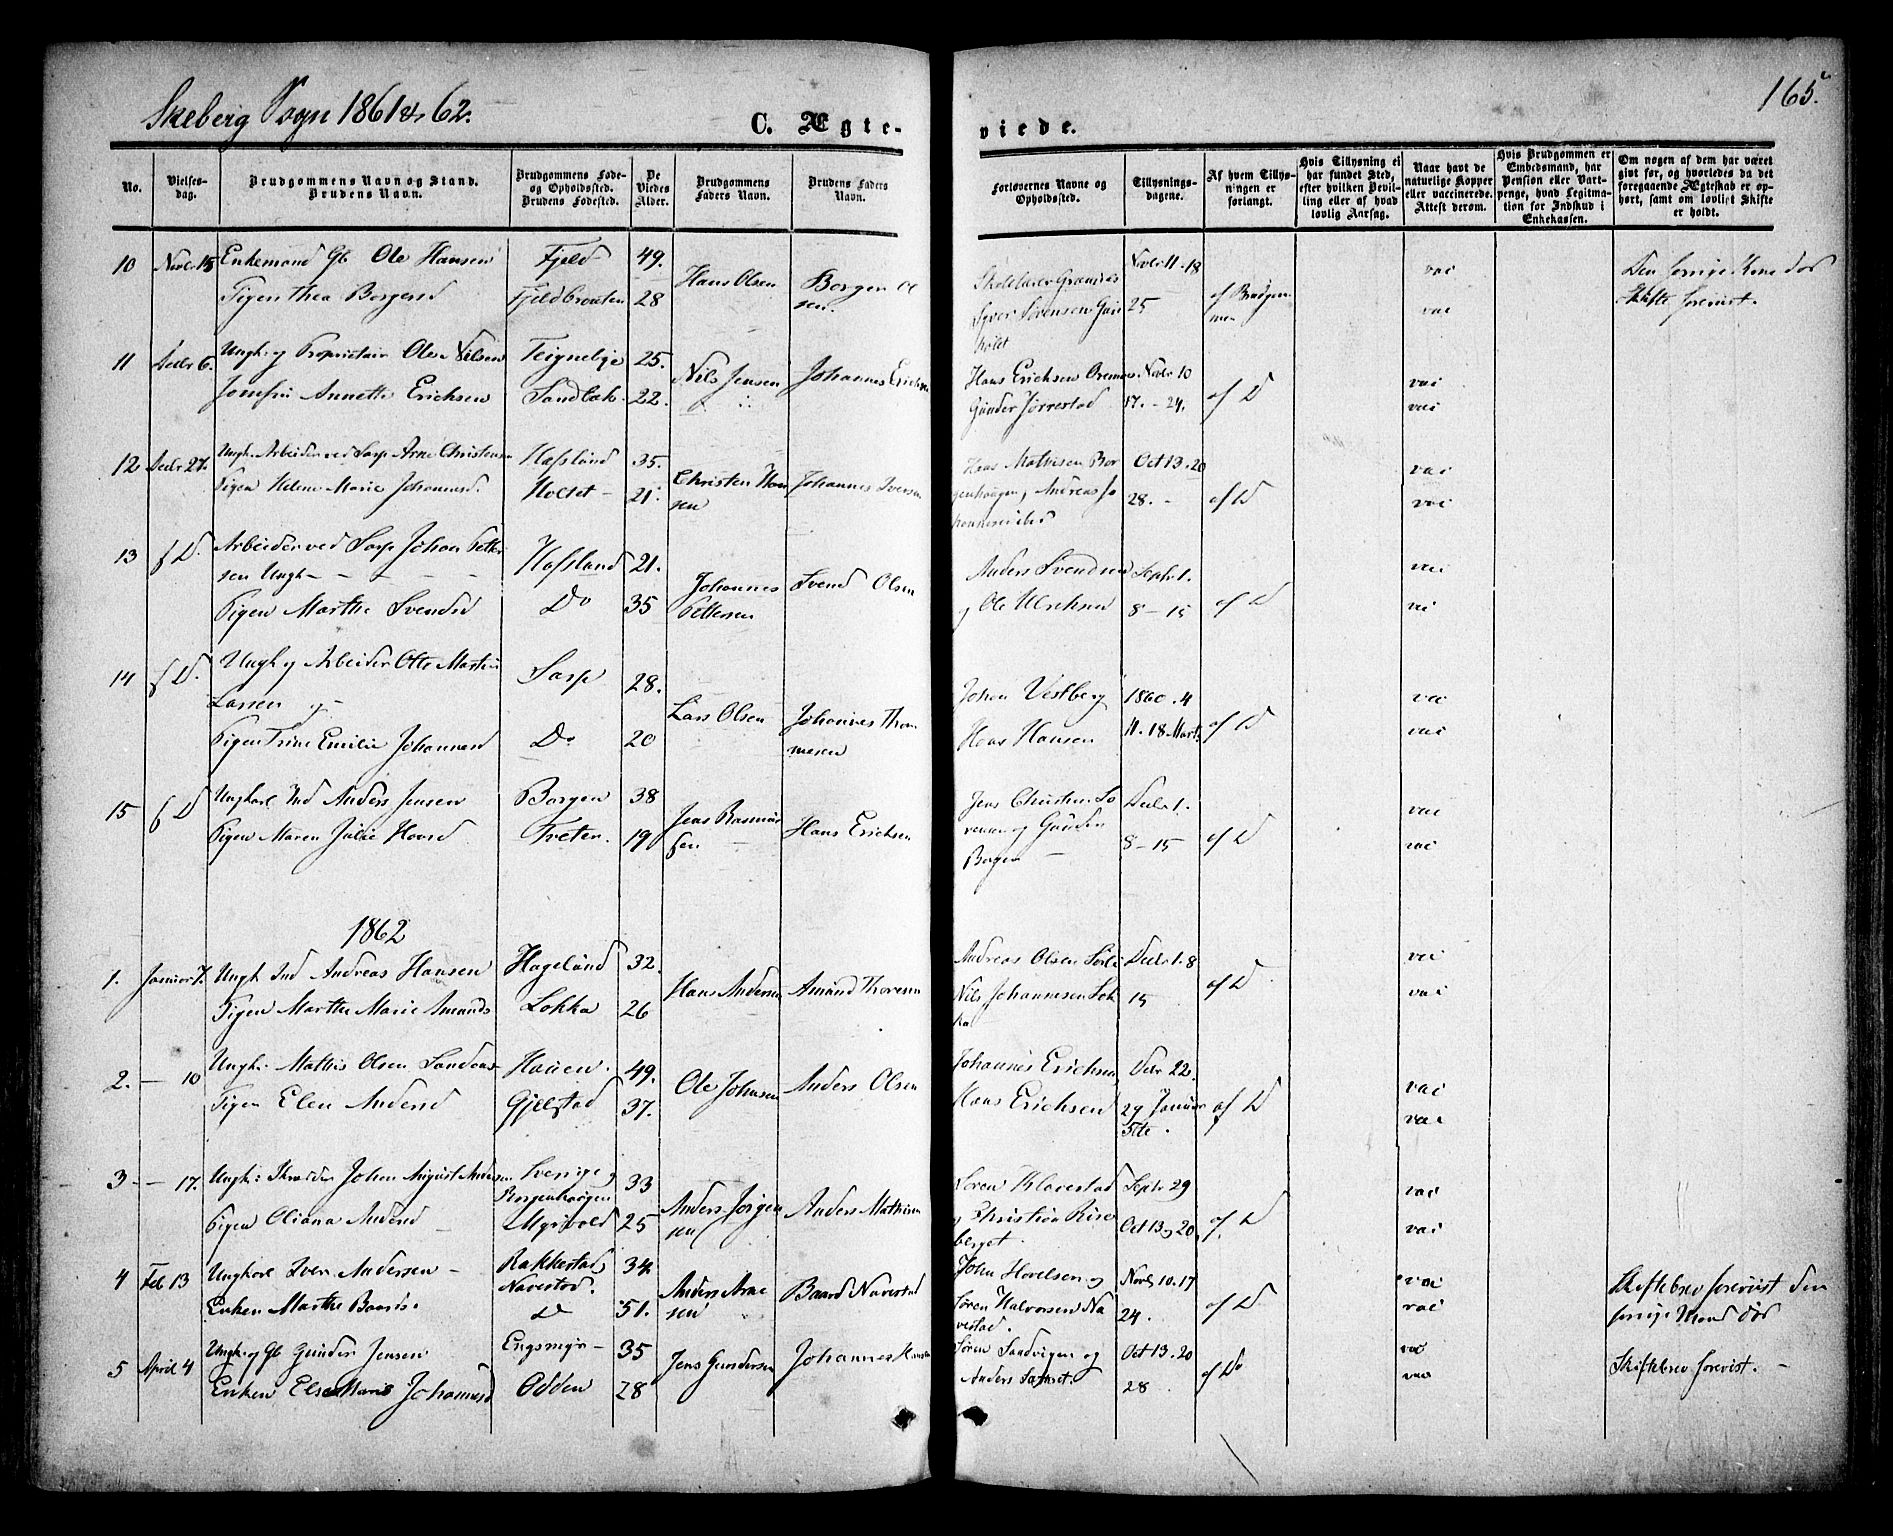 Skeberg Sogn 1861 & 62.
165.
C. Ægte-
viede.
No.
Vielses-
dag.
Brudgommens Navn og Stand.
Brudens Navn.
Brudgommens Føde-
og Opholdssted.
Brudens Fødested.
De
Viedes
Alder.
Brudgommens
Faders Navn.
Brudens Faders
Navn.
Forlovernes Navne og
Opholdssted.
Tillysnings-
dagene.
Af hvem Tillys-
ningen er
forlangt.
Hvis Tillysning ei
har fundet Sted,
efter hvilken Bevil-
ling eller af hvad
lovlig Aarsag.
Naar havt de
naturlige Kopper
eller vaccinerede.
Attest derom.
Hvis Brudgommen er
Embedsmand, har
Pension eller Vart-
penge, hvad Legitima-
tion for Indskud i
Enkekassen.
Om nogen af dem har været
givt før, og hvorledes da det
foregaaende Ægteskab er op-
hørt, samt om lovligt Skifte
er holdt.
10 Novbr 15 Enkemand Gb Ole Hansen Fjeld 49. Hans Olsen Borger Ol
sen. Novbr 11. 18 vac Den forrige Kone død
Pigen Thea Borgersd Fjeldbraaten 28 Syver Sørensen 25 af Brudgom
men vac Skifte forevist.
11 Decbr 6. Ungk og Proprietair Ole Nilsen Teigneby 25. Nils Jensen Johannes Erichsen Hans Erichsen Novbr 10 af D vac
Josefine Annette Erichsen Sandbak 22. Gunder Jørrestad 17. - 24. vac
12 Decbr 27. Ungk. Arbeider ved Sarp Arne Christensen Hafslund 35. Christen Han
sen Johannes Iversen Hans Mathisen Bor Oct 13. 20 vac
Pigen Helene Marie Johannesd. Holtet - 21. genhaugen, Andreas Jo 28. - af D vac
13 f D. Arbeider ved Sarp Johan Petter
sen Ungk - - - - Hafslund 21. Johannes
Pettersen Svend Olsen Anders Svendsen Septbr 1. vac
Pigen Marthe Svendsd Do 35 og Ole Ulrichsen 8 - 15 af D vac
14 f D. Ungk og Arbeider Otto Martin
Larsen og - Sarp 28. Lars Olsen Johannes Thom
mesen Johan Vestberg 1860. 4 vac
Pigen Trine Emilie Johannesd Do 20 Hans Hansen 11. 18 Marts af D vac
15 f D Ungkarl Ind Anders Jensen Borgen 38 Jens Rasmus
sen - Hans Erichsen Jens Christen So Decbr 1. vac
Pigen Maren Julie Hansd Treter. 19 og Gunder
Borgen - 8 - 15 af D vac
1862
1. Januar 7. Ungk Ind Andreas Hansen Hagelund 32. Hans Andersen Amund Thoresen Andreas Olsen Decbr 1. 8 af D vac
Pigen Marthe Marie Amunds Lokka 26 Nils Johannesen Lok
ka 15 vac
2. - 10 Ungk. Mathis Olsen Hauen. 49. Ole Johnsen Anders Olsen Johannes Erichsen Decbr 22. vac
Pigen Elen Andersd Gjelstad 37. Hans Erichsen 29 Januar
5te. af D vac
3 - 17. Ungk: Skrædder Johan August Andersen Sverige og
Borgenhaugen 33 Anders Jørgen
sen Anders Mathisen Søren Klavestad Septbr 29 vac
Pigen Oliana Andersd Myrvold 25 og Christian Rise
berget. Oct 13 og 20 af D vac
4 Feb 13 Ungkarl Iver Andersen - Rakkestad,
Navestad. 34 Anders Arne
sen Baard Navestad John Hovelsen og Novbr 10. 17 vac Skiftebrev forevist den
Enken Marthe Baards. D 51. Søren Halvorsen Na
vestad. 24. af D vac forrige Mand død
5 April 4 Ungk og Gb Gunder Jensen Engsmyr - 35 Jens Gundersen Johannes Hansen Søren Sandvigen og Oct 13. 20 vac Skiftebrev forevist. -
Enken Else Marie Johannesd Odden 28 Anders 28 af D vac